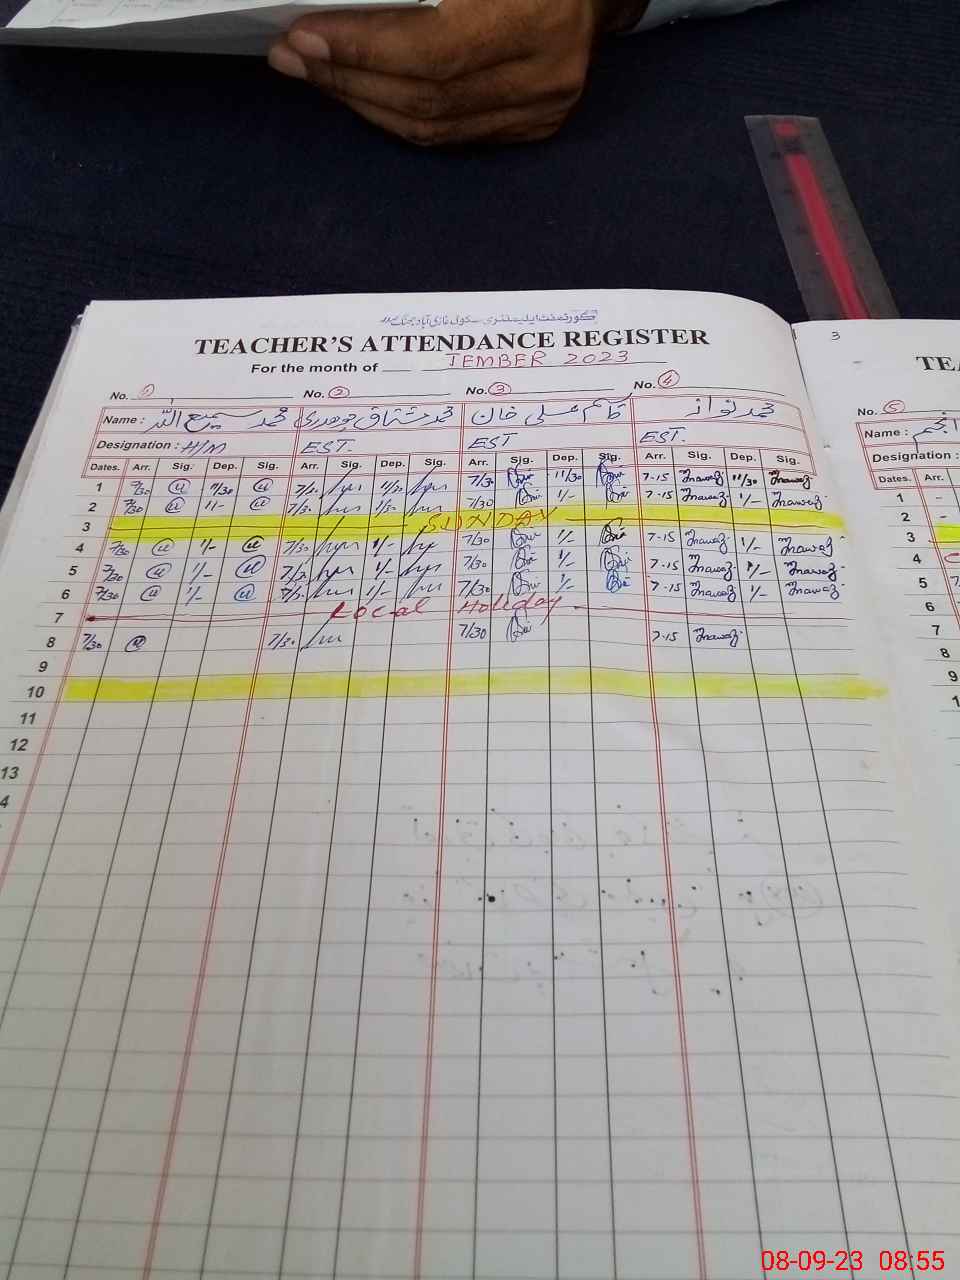 گورنمنٹ ایلیمنٹری سکول غازی آباد
TEACHER'S ATTENDANCE REGISTER
For the month of TEMBER 2023
No. 1 No. 2 No. 3 No. 4
Name : محمد سمیع اللہ محمد مشتاق چوھدری قاسم علی خان محمد نواز
Designation : H/M EST. EST EST.
Dates. Arr. Sig. Dep. Sig. Arr. Sig. Dep. Sig. Arr. Sig. Dep. Sig. Arr. Sig. Dep. Sig.
1 7/30 11/30 7/30 11/30 7/30 11/30 7-15 Mnawaz 11/30 Mnawaz
2 7/30 11- 7/30 1/30 7/30 1/- 7-15 Mnawaz 1/- Mnawaz
3 SUNDAY
4 7/30 1/- 7/30 1/- 7/30 1/- 7-15 Mnawaz 1/- Mnawaz
5 7/30 1/- 7/30 1/- 7/30 1/- 7-15 Mnawaz 1/- Mnawaz
6 7/30 1/- 7/30 1/- 7/30 1/- 7-15 Mnawaz 1/- Mnawaz
7 Local Holiday
8 7/30 7/30 7/30 7-15 Mnawaz
9
10
11
12
13
4
3
TEA
No. 5
Name :
Designation :
Dates. Arr.
1 -
2 -
3
4
5
6
7
8
9
1
08-09-23 08:55